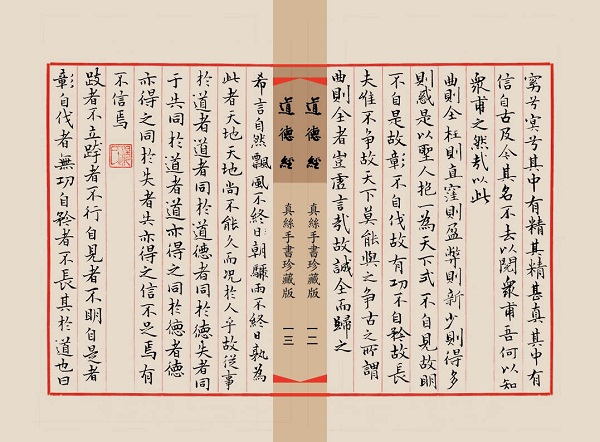 窈兮冥兮其中有精其精甚真其中有
信自古及今其名不去以閱衆甫吾何以知
衆甫之然哉以此
曲則全枉則直窪則盈弊則新少則得多
則惑是以聖人抱一為天下式不自見故明
不自是故彰不自伐故有功不自矜故長
夫唯不爭故天下莫能與之爭古之所謂
曲則全者豈虛言哉故誠全而歸之
道德經 真絲手書珍藏版 一二
道德經 真絲手書珍藏版 一三
希言自然飄風不終日朝驟雨不終日孰為
此者天地天地尚不能久而況於人乎故從事
於道者道者同於道德者同於德失者同
于失同於道者道亦得之同於德者德
亦得之同於失者失亦得之信不足焉有
不信焉
跂者不立跨者不行自見者不明自是者
彰自伐者無功自矜者不長其於道也曰